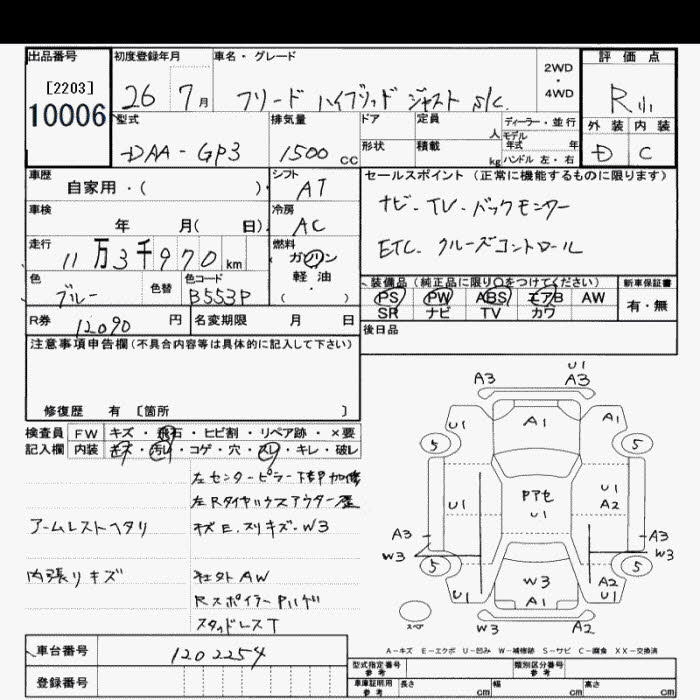 出品番号 初度登録年月 車名・グレード 評価点
[2203] 2WD
10006 26 7月 フリード ハイブリッド ジャスト S/C. ・ R
4WD
型式 排気量 ドア 定員 人 ディーラー・並行 外装 内装
DAA-GP3 1500cc モデル年式 年 D C
形状 積載 kg ハンドル 左・右
車歴 自家用・( ) シフト AT セールスポイント (正常に機能するものに限ります)
車検 年 月( 日) 冷房 AC ナビ. TV. バックモニター
走行 11万3千970km 燃料 ガソリン ETC. クルーズコントロール
軽油
色 ブルー 色替 色コード B553P ( ) 装備品(純正品に限り○をつけてください) 新車保証書
PS PW ABS エアB AW 有・無
R券 12090円 名変期限 月 日 SR ナビ TV カワ
注意事項申告欄(不具合内容等は具体的に記入して下さい) 後日品
修復歴 有 〔箇所 〕
検査員 FW キズ・飛石・ヒビ割・リペア跡・×要
記入欄 内装 キズ・汚レ・コゲ・穴・スレ・キレ・破レ
左センターピラー下部
左Rタイヤハウスアウター歪
アームレストヘタリ キズE.スリキズ.W3
内張りキズ 社外AW
Rスポイラー Pハゲ
スタッドレスT
U1
A3 A3
U1 A1 A1
5 5
Pアセ
U1 U1 U1
A2
A3 A3
W3 W3
5 5
W3 A2
U1 A1 U1
スペア W3 A2
A-キズ E-エクボ U-凹み W-補修跡 S-サビ C-腐食 XX-交換済
車台番号 1202254 型式指定番号 参考 類別区分番号 参考
登録番号 車庫証明用 参考 長さ cm 幅 cm 高さ cm